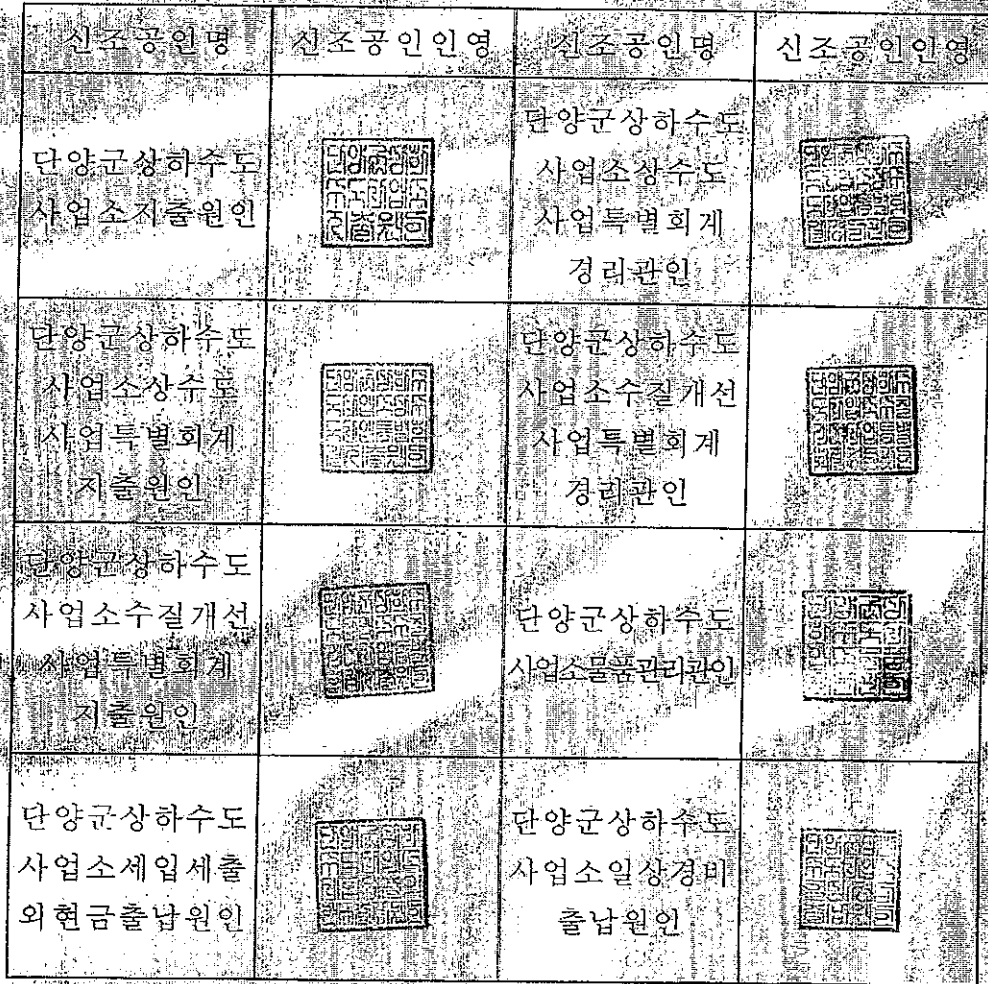 신조공인명 신조공인인영 신조공인명 신조공인인영
단양군상하수도
사업소지출원인
단양군상하수도
사업소상수도
사업특별회계
경리관인
단양군상하수도
사업소상수도
사업특별회계
지출원인
단양군상하수도
사업소수질개선
사업특별회계
경리관인
단양군상하수도
사업소수질개선
사업특별회계
지출원인
단양군상하수도
사업소물품관리관인
단양군상하수도
사업소세입세출
외현금출납원인
단양군상하수도
사업소일상경비
출납원인